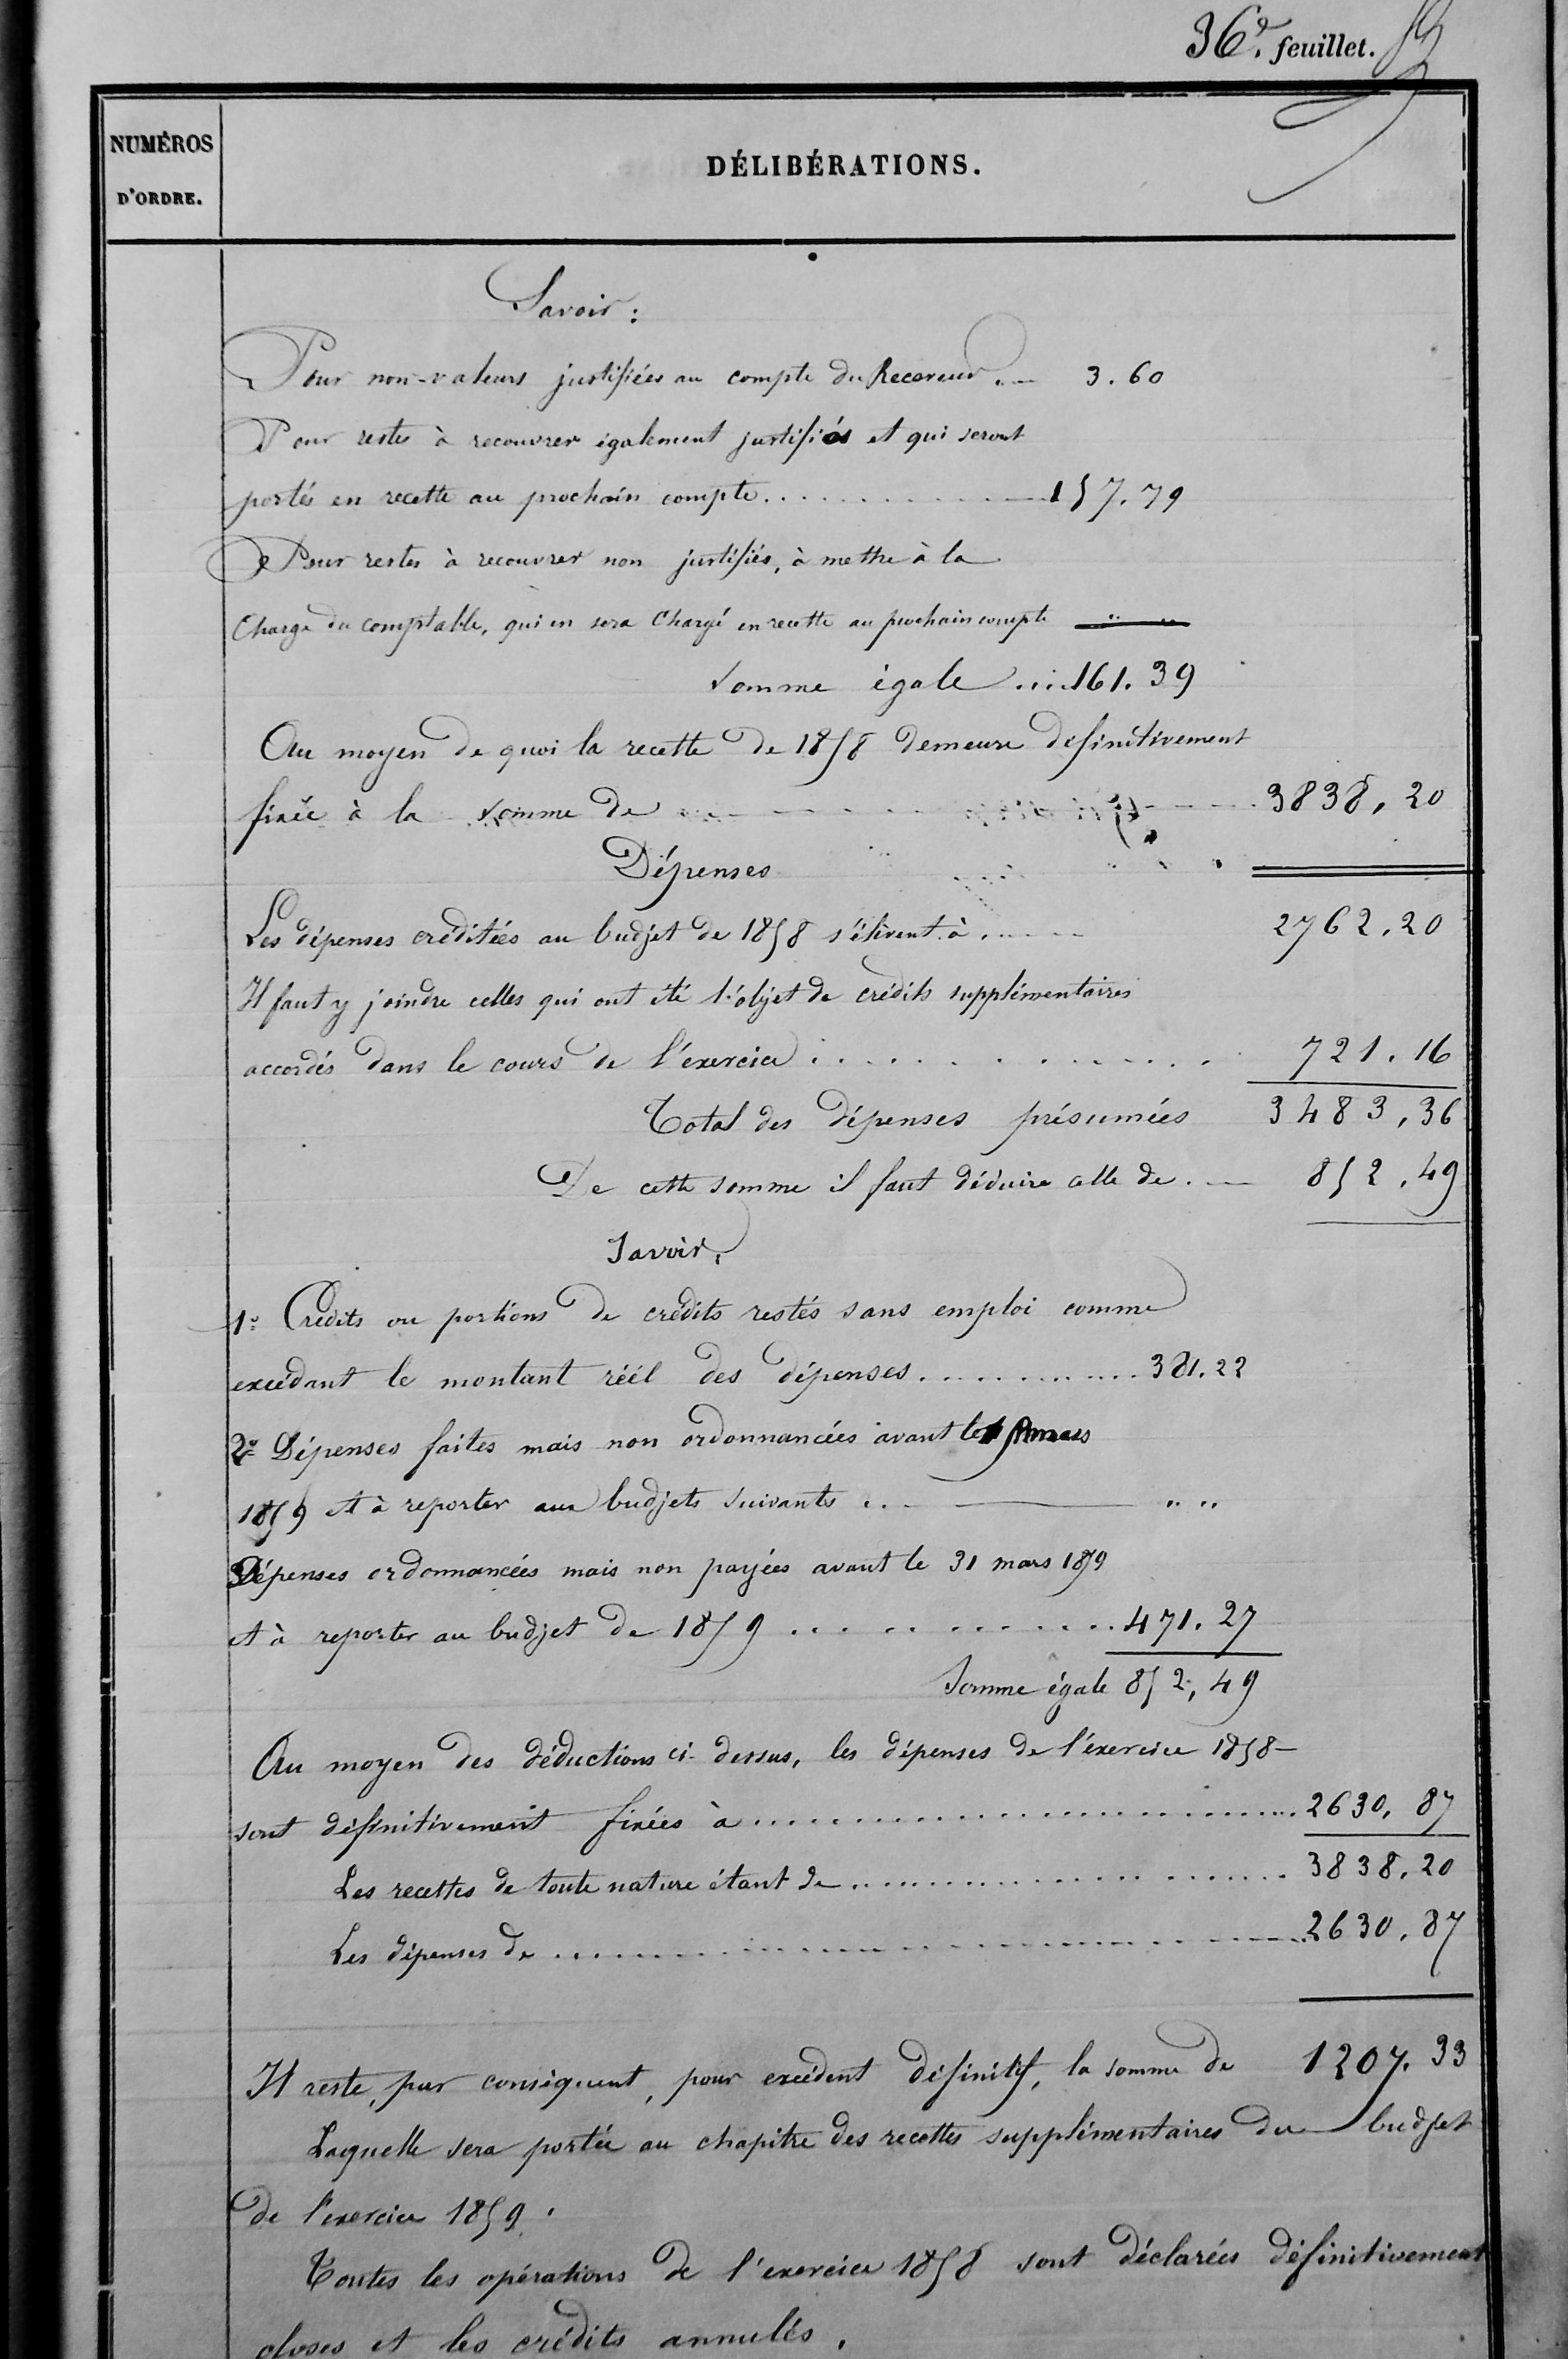 36e. feuillet.
NUMÉROS
D'ORDRE.
DÉLIBÉRATIONS.
Savoir:
Pour non-valeurs justifiées au compte du Receveur... 3.60
Pour restes à recouvrer également justifiés et qui seront
portés en recette au prochain compte............157.79
Pour restes à recouvrer non justifiés, à mettre à la
charge du comptable, qui en sera chargé en recette au prochain compte " "
Somme égale....161.39
Au moyen de quoi la recette de 1858 demeure définitivement
fixée à la somme de 3838,20
Dépenses
Les dépenses créditées au budjet de 1858 s'élèvent à...... 2762.20
Il faut y joindre celles qui ont été l'objet de crédits supplémentaires
accordés dans le cours de l'exercice............ 721.16
Total des dépenses présumées 3483,36
De cette somme il faut déduire celle de... 852.49
Savoir,
1o. Crédits ou portions de crédits restés sans emploi comme
excédant le montant réél des dépenses............381.22
2o. Dépenses faites mais non ordonnancées avant le mars
1859 et à reporter aux budjets suivants... " "
3o Dépenses ordonnancées mais non payées avant le 31 mars 1859
et à reporter au budjet de 1859............471.27
Somme égale 852,49
Au moyen des déductions ci-dessus, les dépenses de l'exercice 1858
sont définitivement fixées à............2630,87
Les recettes de toute nature étant de............3838.20
Les dépenses de............2630.87
Il reste, par conséquent, pour excédent définitif, la somme de 1207.33
Laquelle sera portée au chapitre des recettes supplémentaires du budjet
de l'exercice 1859.
Toutes les opérations de l'exercice 1858 sont déclarées définitivement
closes et les crédits annulés,